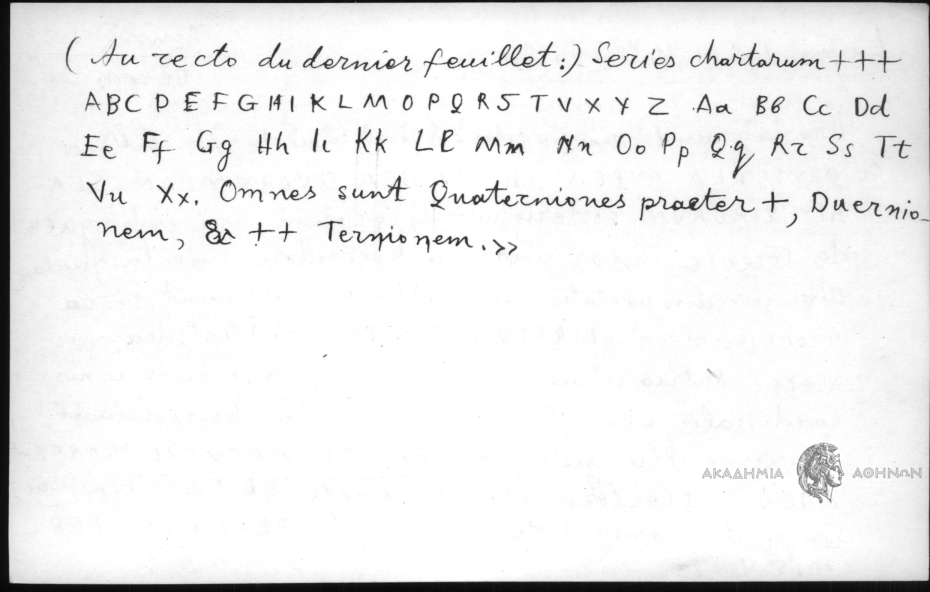 (Au recto du dernier feuillet:) Series chartarum +++
A B C D E F G H I K L M O P Q R S T V X Y Z Aa Bb Cc Dd
Ee Ff Gg Hh Ii Kk Ll Mm Nn Oo Pp Qq Rr Ss Tt
Vu Xx. Omnes sunt Quaterniones praeter +, Duernio-
nem, & ++ Ternionem.»
ΑΚΑΔΗΜΙΑ ΑΘΗΝΩΝ